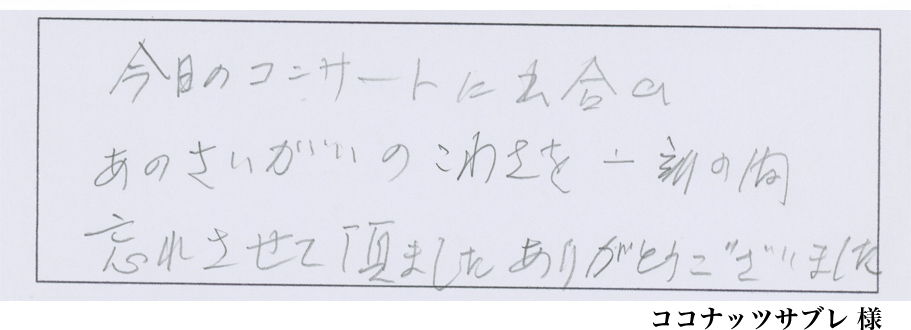 今日のコンサートに出合い
あのさいがいのこわさを一刻の間
忘れさせて頂ましたありがとうございました
ココナッツサブレ 様